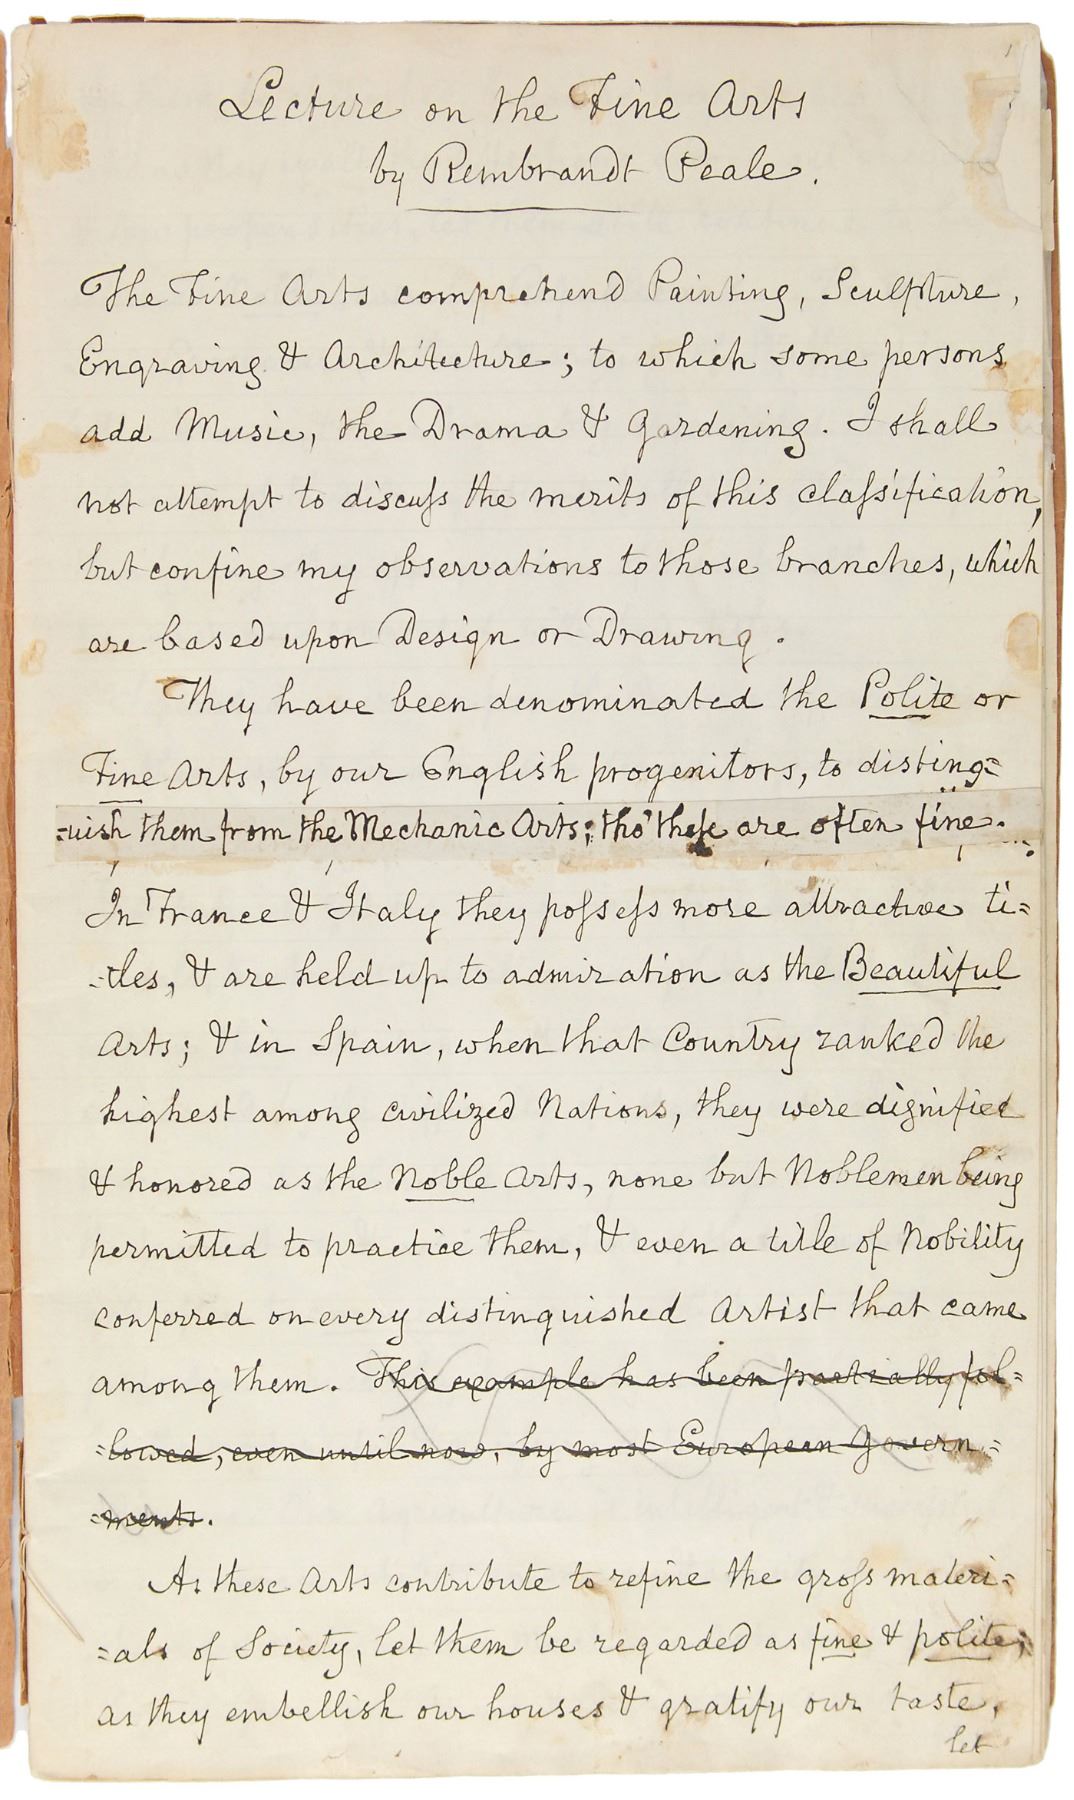 1
Lecture on the Fine Arts
by Rembrandt Peale.
The Fine Arts comprehend Painting, Sculpture,
Engraving & Architecture; to which some persons
add Music, the Drama & Gardening. I shall
not attempt to discuſs the merits of this claſsification,
but confine my observations to those branches, which
are based upon Design or Drawing.
They have been denominated the Polite or
Fine Arts, by our English progenitors, to disting=
=uish them from the Mechanic Arts; tho' these are often fine.
In France & Italy they poſseſs more attractive ti=
=tles, & are held up to admiration as the Beautiful
Arts; & in Spain, when that Country ranked the
highest among civilized Nations, they were dignified
& honored as the Noble Arts, none but Noblemen being
permitted to practice them, & even a title of Nobility
conferred on every distinguished Artist that came
among them. This example has been partially fol=
=lowed, even until now, by most European Govern=
=ments.
As these Arts contribute to refine the groſs materi=
=als of Society, let them be regarded as fine & polite;
as they embellish our houses & gratify our taste,
let